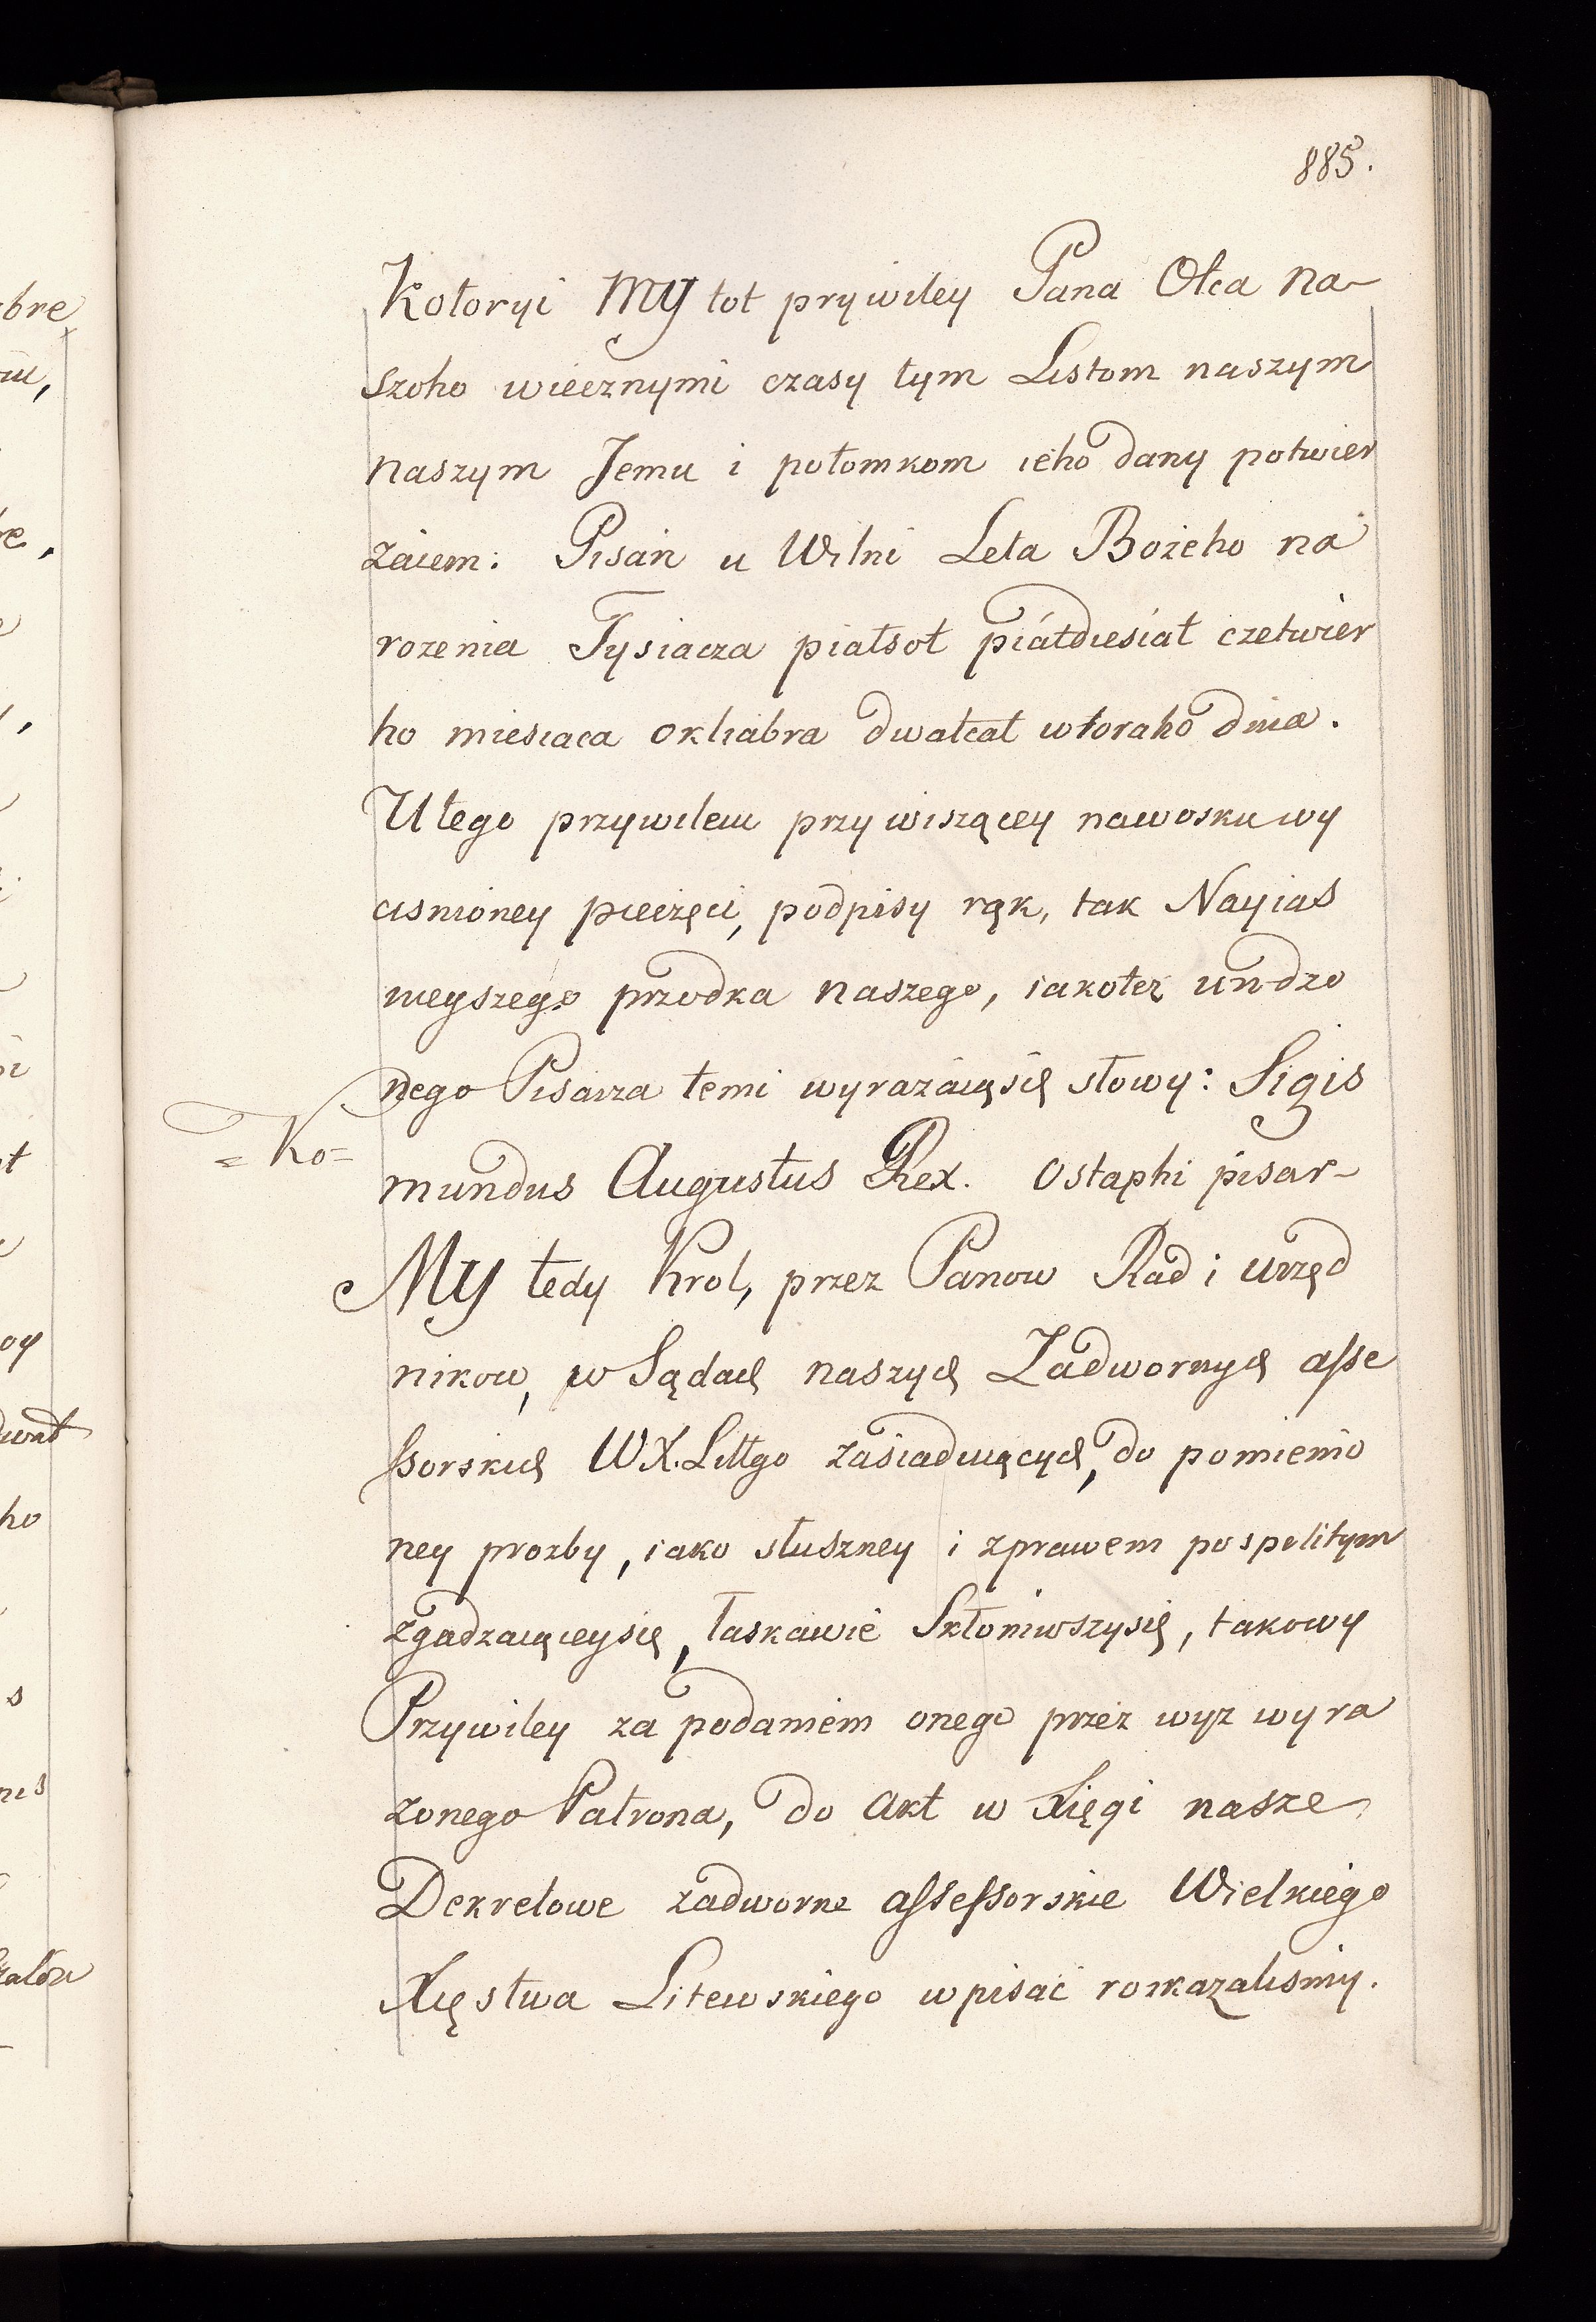 885.
Kotoryi My tot prywiley Pana Otca na-
szoho wiecznymi czasy tym Listom naszym
naszym Jemu i potomkom ieho dany potwier
żaiem: Pisan u Wilni Leta Bożeho na
rozenia Tysiacza piatsot piatdiesiat czetwier
ho miesiaca oktiabra dwatcat wtoraho dnia.
U tego przywileiu przywiszącey na wosku wy
cisnioney pieczęci, podpisy rąk, tak Nayias
nieyszego przodka naszego, iakotez urodzo
nego Pisarza temi wyrażaią się słowy: Sigis
=Ko=
mundus Augustus Rex. Ostaphi pisar-
My tedy Krol, przez Panow Rad i urzęd
nikow, w Sądach naszych Zadwornych asse
ssorskich W.X.Littgo zasiadaiących, do pomienio
ney prozby, iako słuszney i z prawem pospolitym
zgadzaiącey się, łaskawie Skłoniwszy się, takowy
Przywiley za podaniem onego przez wyz wyra
żonego Patrona, do Akt w Xięgi nasze
Dekretowe zadworne assessorskie Wielkiego
Xięstwa Litewskiego wpisać roskazalismy.